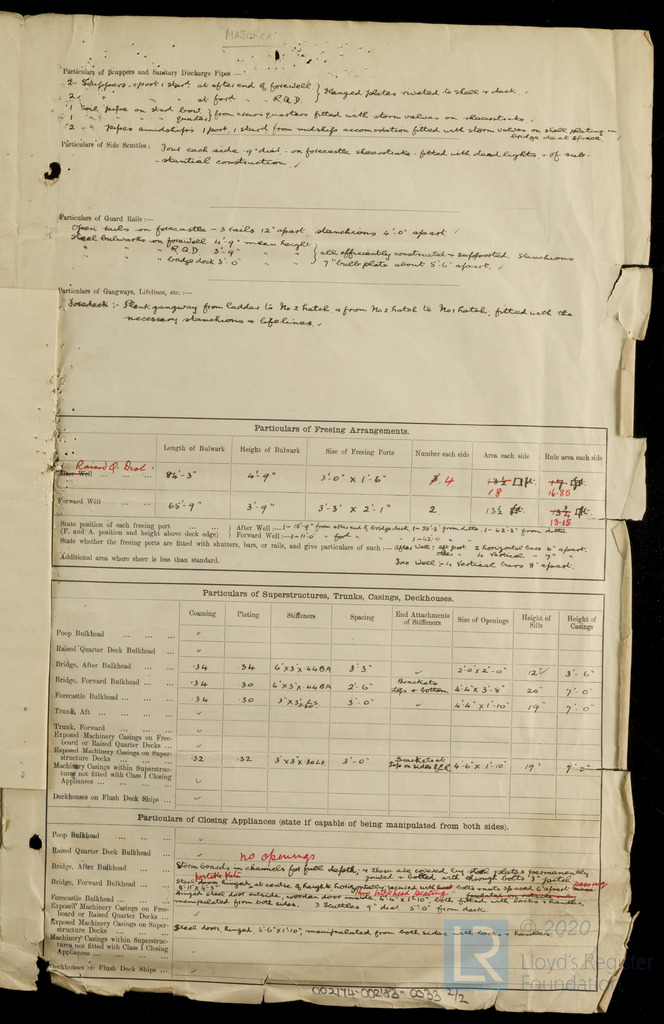 MAJORCA
Particulars of Scuppers and Sanitary Discharge Pipes —
2 - Scuppers - 1 port 1 starb at after end of forewell } Flanged plates riveted to shell & deck.
2 " " " at ford " R.Q.D.
1 Soil pipe on starb bow } from crew's quarters fitted with storm valves on shearstrake.
1 " " " quarter
2 " pipes amidships 1 port, 1 starb from midships accomodation fitted with storm valves on shell plating in bridge deck space.
Particulars of Side Scuttles: Four each side 9" diar - on forecastle shearstrake - fitted with dead lights - of sub-
stantial construction.
Particulars of Guard Rails :—
Open rails on forecastle - 3 rails 12" apart, stanchions 4'-0" apart
Steel bulwarks on forewell 4'-9" mean height } all efficiently constructed & supported stanchions
" " " R.Q.D. 3'-9" " "
" " " bridge deck 3'-0" " " 7" bulb plate about 5'-6" apart.
Particulars of Gangways, Lifelines, etc. :—
Foredeck :- Plank gangway from ladder to No 2 hatch, & from No 2 hatch to No 1 hatch, fitted with the
necessary stanchions & lifelines.
Particulars of Freeing Arrangements.
Length of Bulwark Height of Bulwark Size of Freeing Ports Number each side Area each side Rule area each side
Raised Q. Deck
After Well 84'-3" 4'-9" 3'-0" x 1'-6" 3 4 13½ ft 18 17 ft 16.85
Forward Well 65'-9" 3'-9" 3'-3" x 2'-1" 2 13½ ft 13¼ ft 13.15
State position of each freeing port ... ... After Well :— 1-15'-9" from after end of bridge deck, 1-38'-3" from ditto, 1-62'-3" from ditto
(F. and A. position and height above deck edge) Forward Well :— 1-11'-0" " ford " " 1-42'-0 " "
State whether the freeing ports are fitted with shutters, bars, or rails, and give particulars of such :— After Well : aft port 2 horizontal bars 6" apart.
other " 4 vertical " 7" "
Additional area where sheer is less than standard. Fore Well :- 4 Vertical bars 8" apart.
Particulars of Superstructures, Trunks, Casings, Deckhouses.
Coaming Plating Stiffeners Spacing End Attachments of Stiffeners Size of Openings Height of Sills Height of Casings
Poop Bulkhead ... ... ...
Raised Quarter Deck Bulkhead ...
Bridge, After Bulkhead ... ... .34 .34 6"x3"x.44 BA 3'3" 2'-0"x2'-0" 12" 3'-6"
Bridge, Forward Bulkhead ... ... .34 30 6"x3"x.44 BA 2'-6" Brackets top & bottom 4'-4"x3'-8" 20" 7'-0"
Forecastle Bulkhead ... ... ... .34 .30 3"x3"x 3'-0" 4'4"x1'-10" 19" 7'-0
Trunk, Aft ... ... ... ...
Trunk, Forward ... ... ...
Exposed Machinery Casings on Free-
board or Raised Quarter Decks ...
Exposed Machinery Casings on Super-
structure Decks ... ... ... .32 .32 3"x3"x.30 3'-0" Brackets at top on sides 4'-6"x1'-10" 19" 7'-0
Machinery Casings within Superstruc-
tures not fitted with Class I Closing
Appliances ... ... ... ...
Deckhouses on Flush Deck Ships ...
Particulars of Closing Appliances (state if capable of being manipulated from both sides).
Poop Bulkhead ... ... ...
Raised Quarter Deck Bulkhead ... no openings
Bridge, After Bulkhead ... ... Storm boards in channels for full depth, & these are covered by steel plates permanently
jointed & bolted with through bolts 3" pitch
Bridge, Forward Bulkhead ... portable plate Steel doors hinged, at centre of height horizontally, secured with bolts & nuts spaced 6" apart passing
4'-11" x 4'-3" thro bulkhead plating
Forecastle Bulkhead ... ... hinged steel door outside, wooden door inside, 4'-4" x 1'-10", both fitted with locks & handles,
manipulated from both sides. 3 Scuttles 9" diar 5'-0" from deck.
Exposed Machinery Casings on Free-
board or Raised Quarter Decks ...
Exposed Machinery Casings on Super-
structure Decks ... ... ... Steel doors, hinged, 4'-6"x1'-10", manipulated from both sides with locks & handles
Machinery Casings within Superstruc-
tures not fitted with Class I Closing
Appliances ... ... ... ...
Deckhouses on Flush Deck Ships ...
© 2020
LR
Lloyd's Register
Foundation
002174-002183-0033 2/2